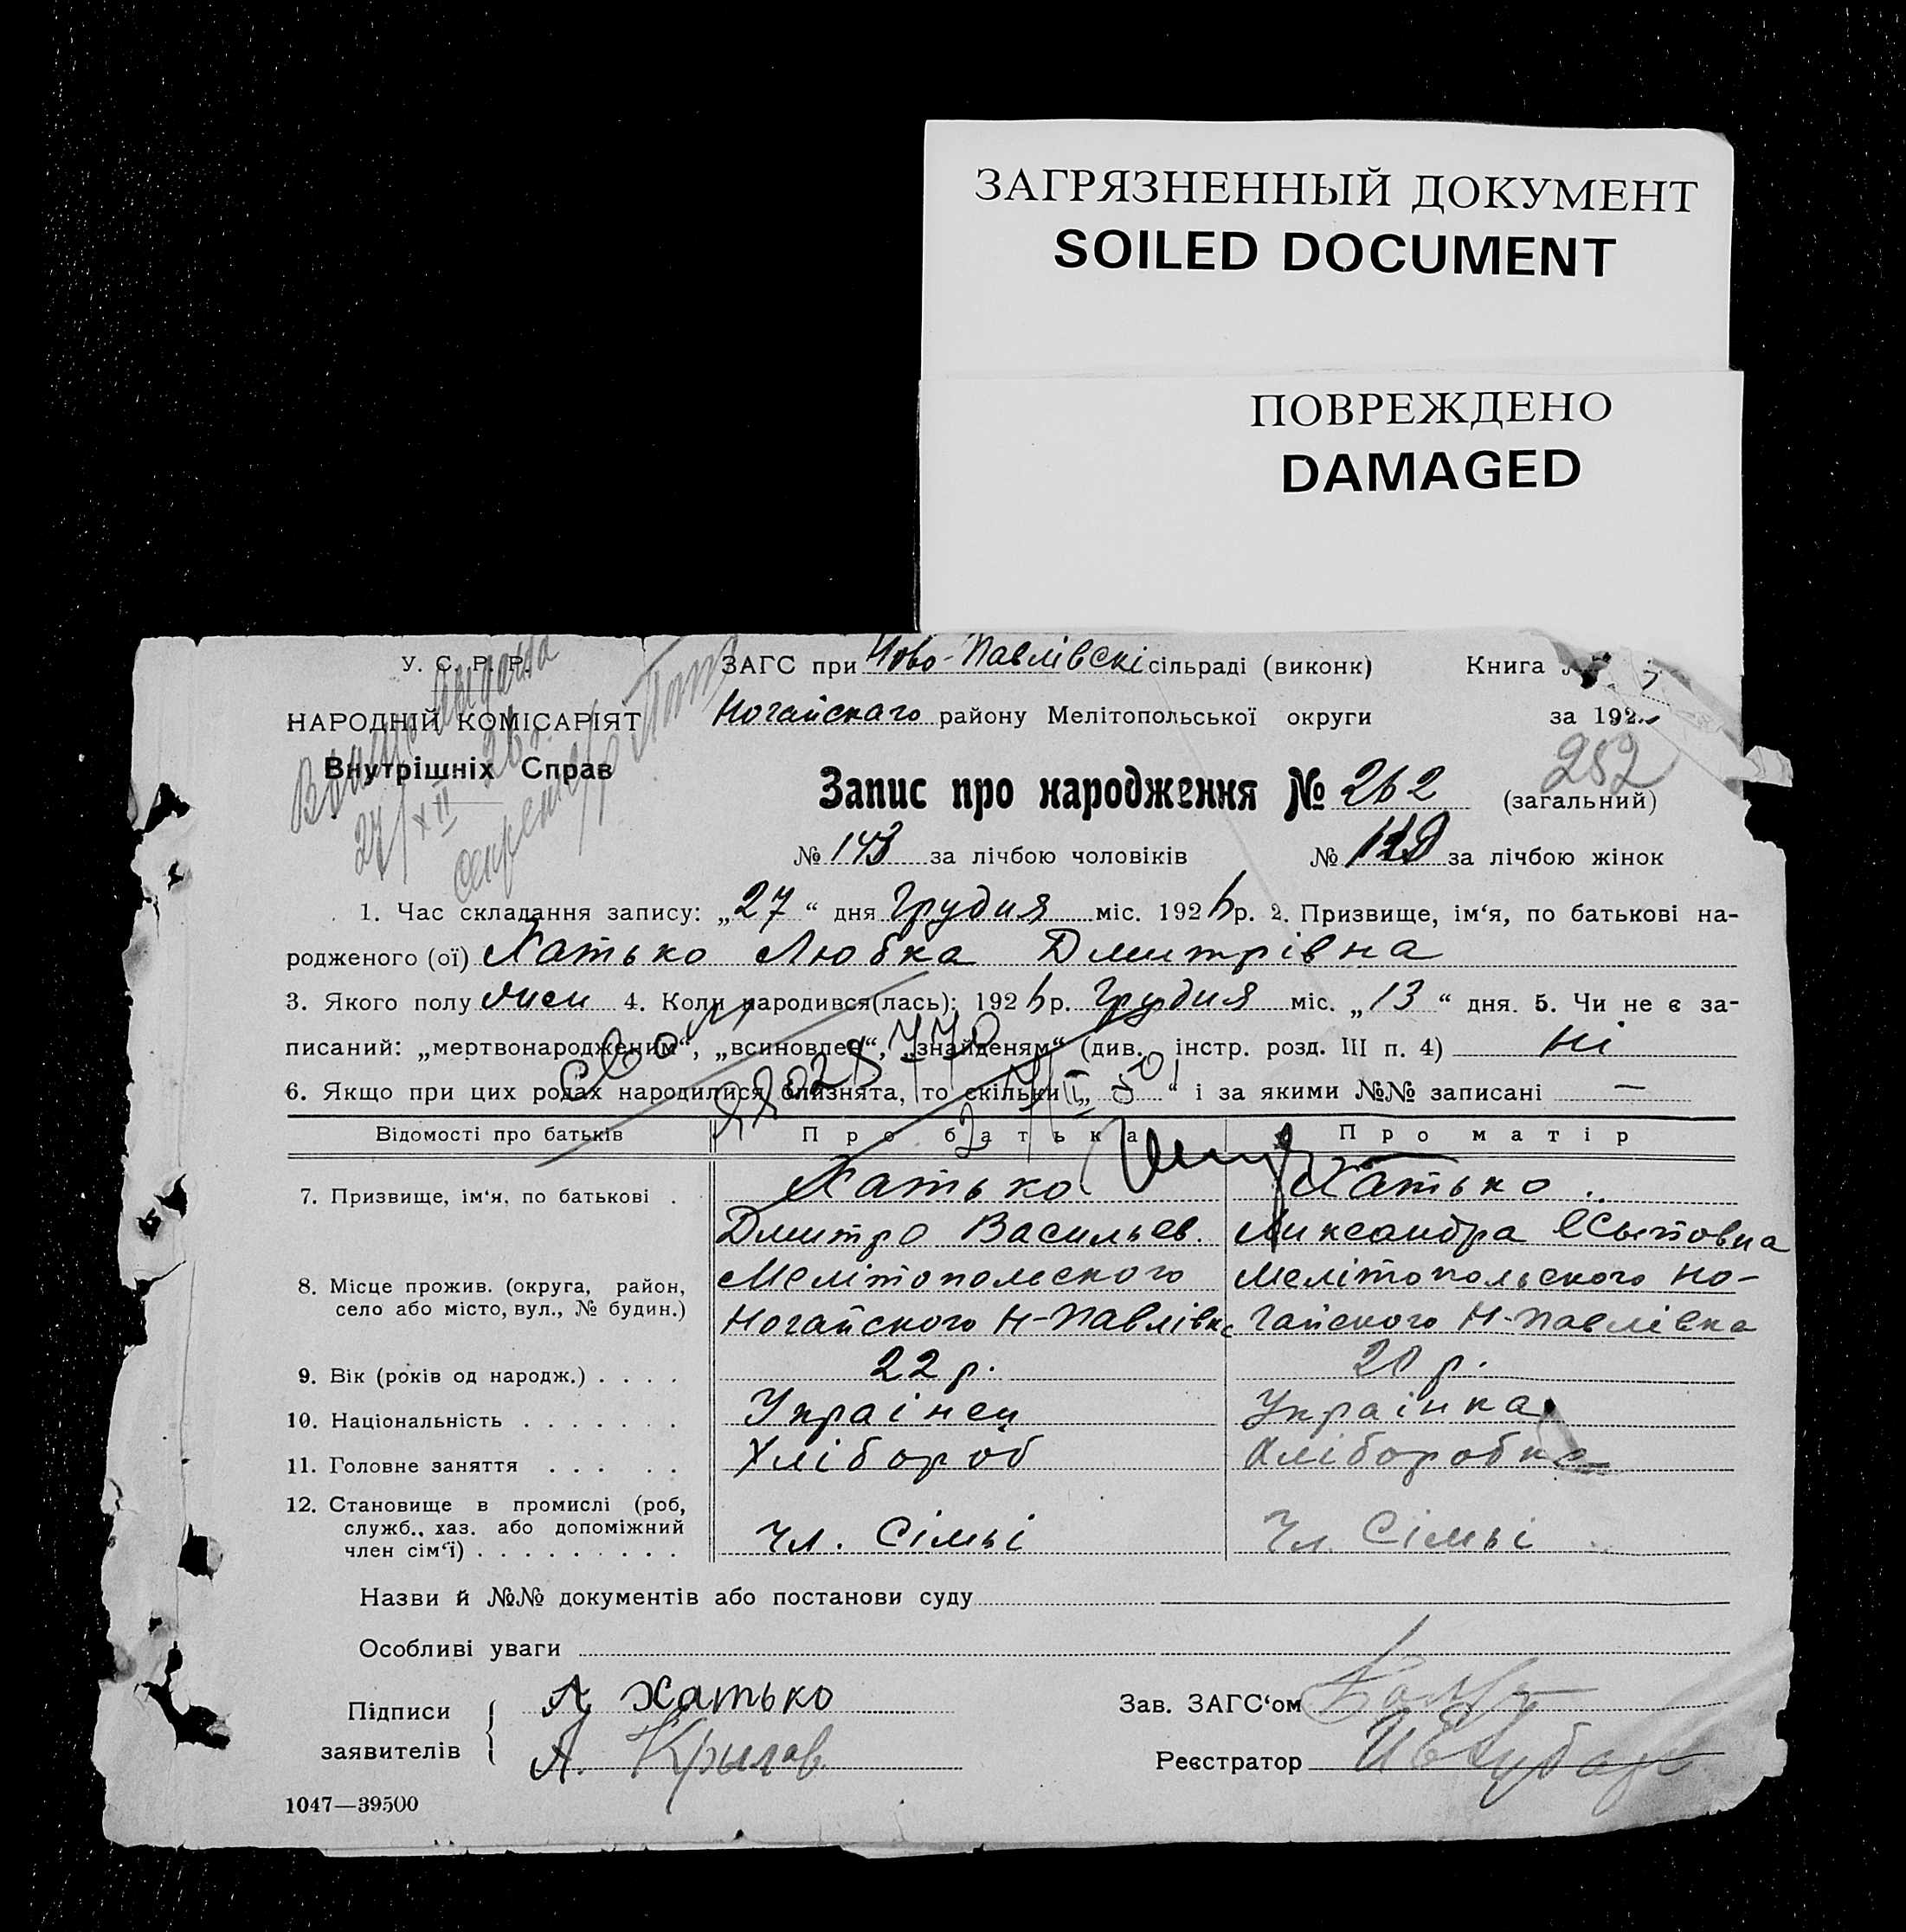 ЗАГРЯЗНЕННЫЙ ДОКУМЕНТ
SOILED DOCUMENT
ПОВРЕЖДЕНО
DAMAGED
У. С. Р. Р.
НАРОДНІЙ КОМІСАРІЯТ
Внутрішніх Справ
27/XII 26
ЗАГС при Ново-Павлівскі сільраді (виконк) Книга
Ногайскаго району Мелітопольської округи за 192
252
Запис про народження № 262 (загальний)
№ 143 за лічбою чоловіків № за лічбою жінок
1. Час складання запису: „27“ дня Грудня міс. 1926 р. 2. Призвище, ім‘я, по батькові на-
родженого (ої) Хатько Любка Дмитрівна
3. Якого полу жіен 4. Коли народився(лась): 1926 р. Грудня міс. „13“ дня. 5. Чи не є за-
писаний: „мертвонародженим“, „всиновлен“, „знайденям“ (див. інстр. розд. III п. 4) ні
6. Якщо при цих родах народилися близнята, то скільки „ “ і за якими №№ записані —
Відомості про батьків Про батька Про матір
7. Призвище, ім‘я, по батькові . Хатько Хатько
Дмитро Васильев. Александра
8. Місце прожив. (округа, район, село або місто, вул., № будин.) Мелітопольского Мелітопольского Но-
Ногайского Н-Павлівка гайского Н-Павлівка
9. Вік (років од народж.) . . . . 22 р. 20 р.
10. Національність . . . . . . . Украінец Украінка
11. Головне заняття . . . . . Хлібороб Хліборобка
12. Становище в промислі (роб, служб., хаз. або допоміжний член сім‘ї) . . . . . . . . . Чл. Сімьі Чл. Сімьі
Назви й №№ документів або постанови суду
Особливі уваги
Підписи заявителів А Хатько
А. Крылов
Зав. ЗАГС‘ом
Реєстратор
1047—39500